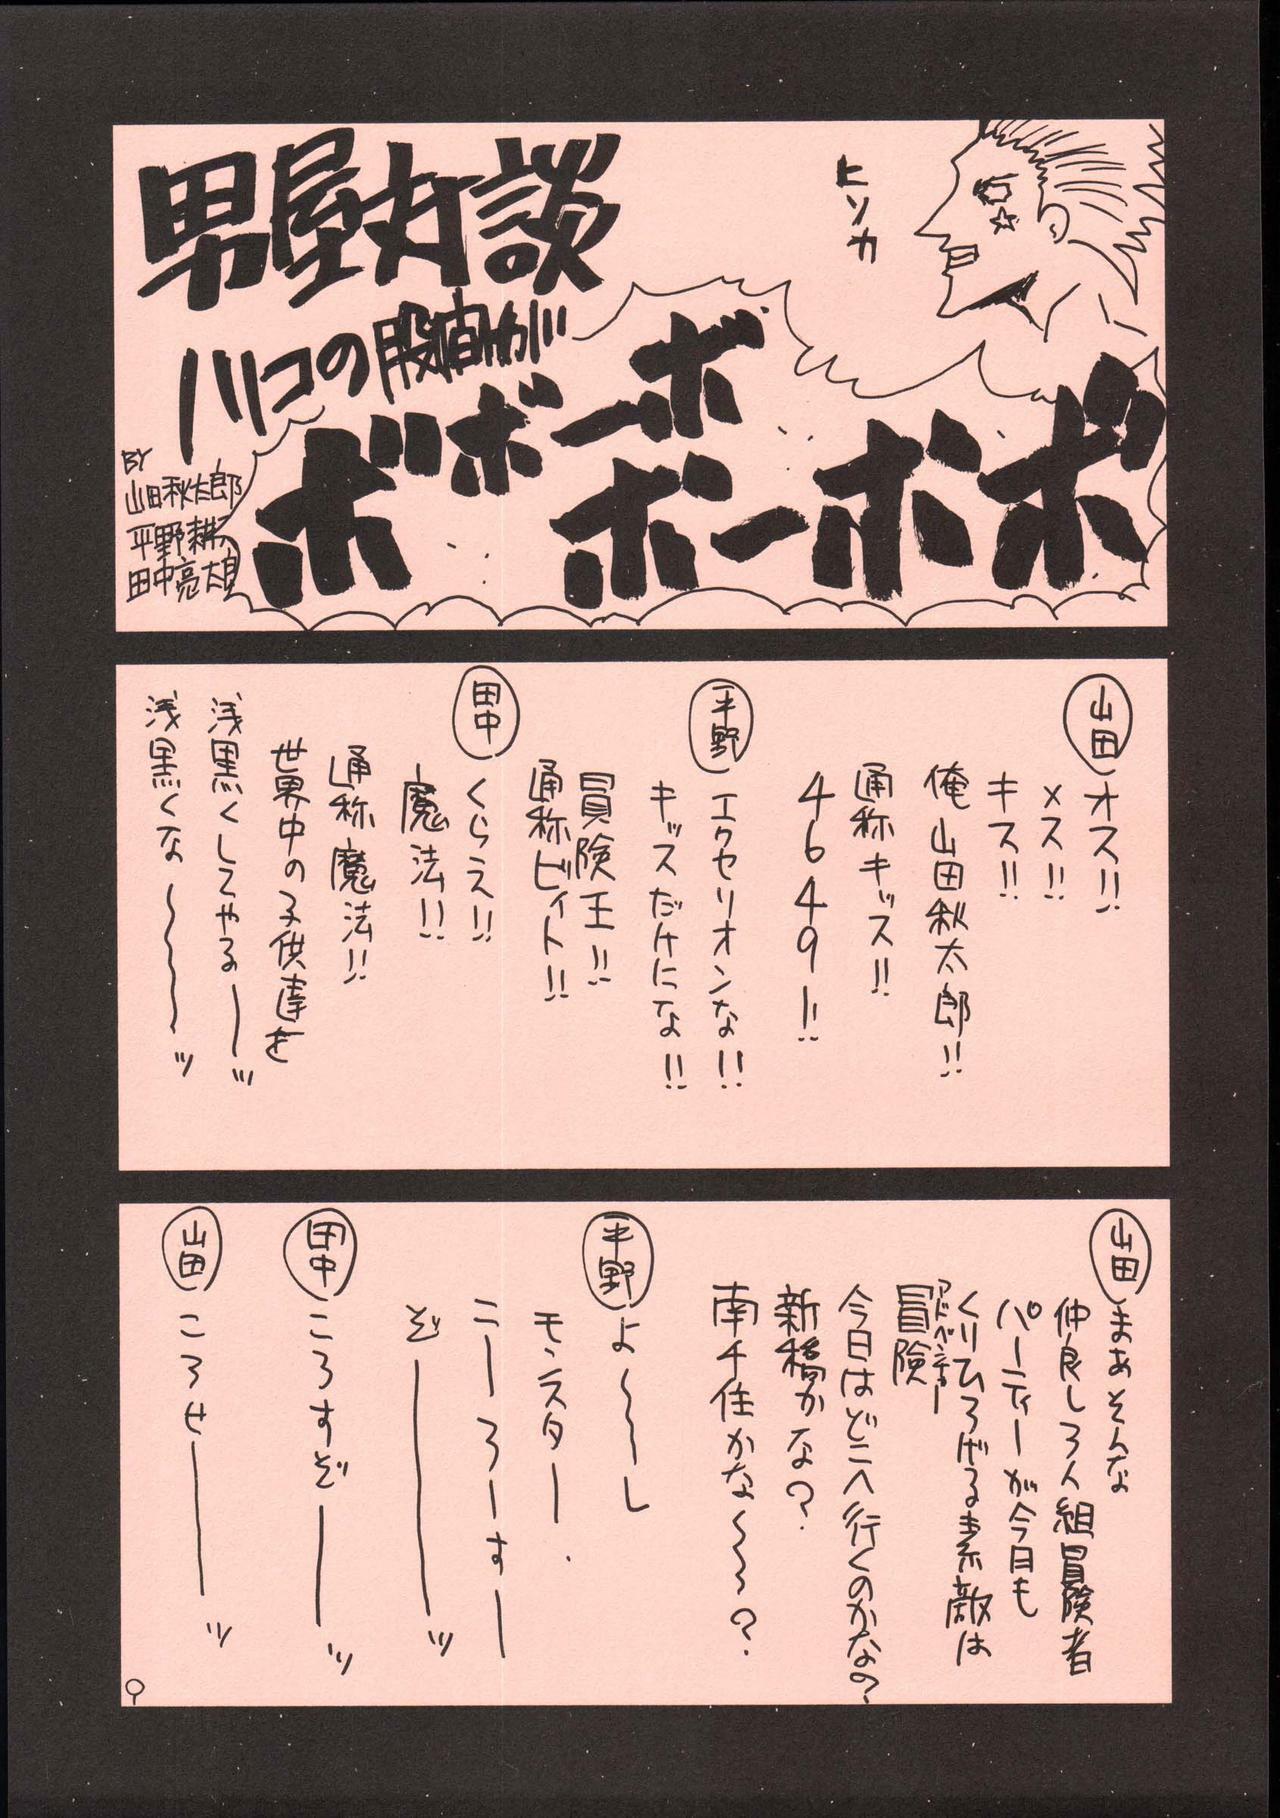 男屋対談
ハリコの股間が
ボボボーボ
ボーボボ
ヒソカ
BY
山田秋太郎
平野耕太
田中亮太郎
山田 オス!!
メス!!
キス!!
俺山田秋太郎!!
通称キッス!!
4649ー!!
平野 エクセリオンな!!
キッスだけにな!!
冒険王!!
通称ビィト!!
田中 くらえ!!
魔法!!
通称魔法!!
世界中の子供達を
浅黒くしてやるーーッ
浅黒くな〜〜〜〜ッ
山田 まあそんな
仲良し3人組冒険者
パーティーが今日も
くりひろげる素敵は
アドベンチャー
冒険
今日はどこへ行くのかな?
新橋かな?
南千住かな〜〜〜?
平野 よ〜〜〜し
モンスター
こーーろーすー
ぞーーーーッ
田中 ころすぞーーーーッ
山田 ころせーーーーッ
9